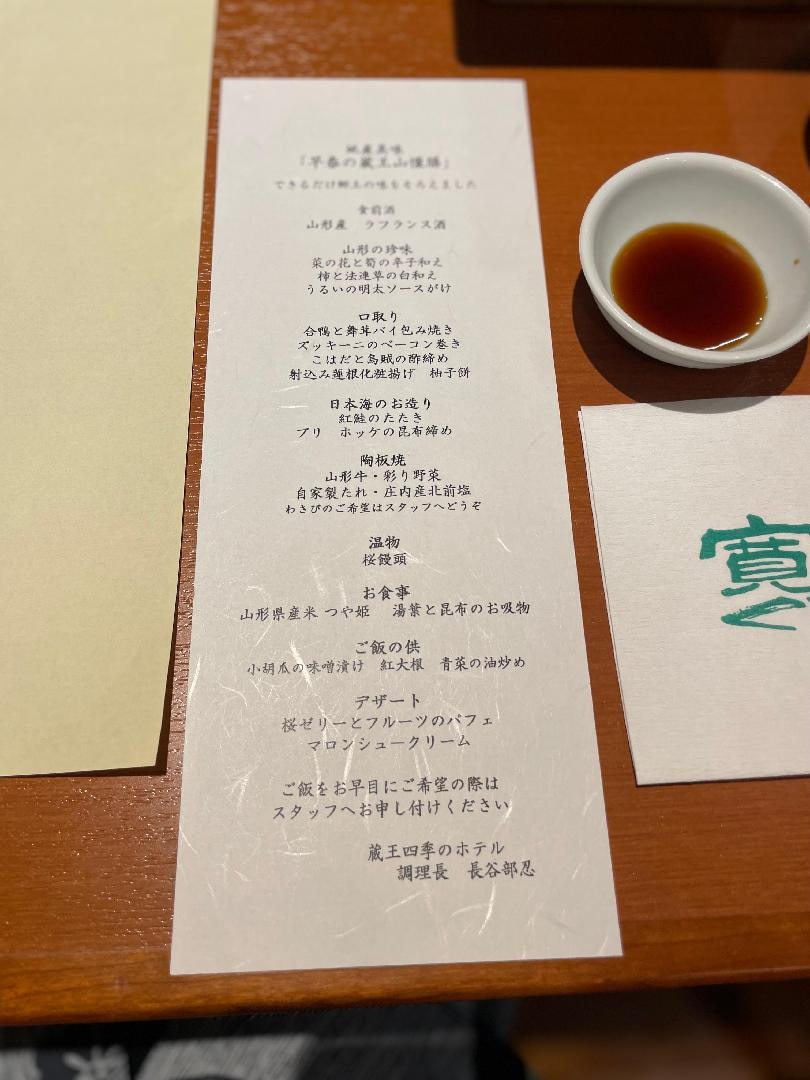 地産美味
「早春の蔵王山懐膳」
できるだけ郷土の味をそろえました
食前酒
山形産　ラフランス酒
山形の珍味
菜の花と筍の辛子和え
柿と法連草の白和え
うるいの明太ソースがけ
口取り
合鴨と舞茸パイ包み焼き
ズッキーニのベーコン巻き
こはだと烏賊の酢締め
射込み蓮根化粧揚げ　柚子餅
日本海のお造り
紅鮭のたたき
ブリ　ホッケの昆布締め
陶板焼
山形牛・彩り野菜
自家製たれ・庄内産北前塩
わさびのご希望はスタッフへどうぞ
温物
桜饅頭
お食事
山形県産米 つや姫　湯葉と昆布のお吸物
ご飯の供
小胡瓜の味噌漬け　紅大根　青菜の油炒め
デザート
桜ゼリーとフルーツのパフェ
マロンシュークリーム
ご飯をお早目にご希望の際は
スタッフへお申し付けください
蔵王四季のホテル
調理長　長谷部忍
寛